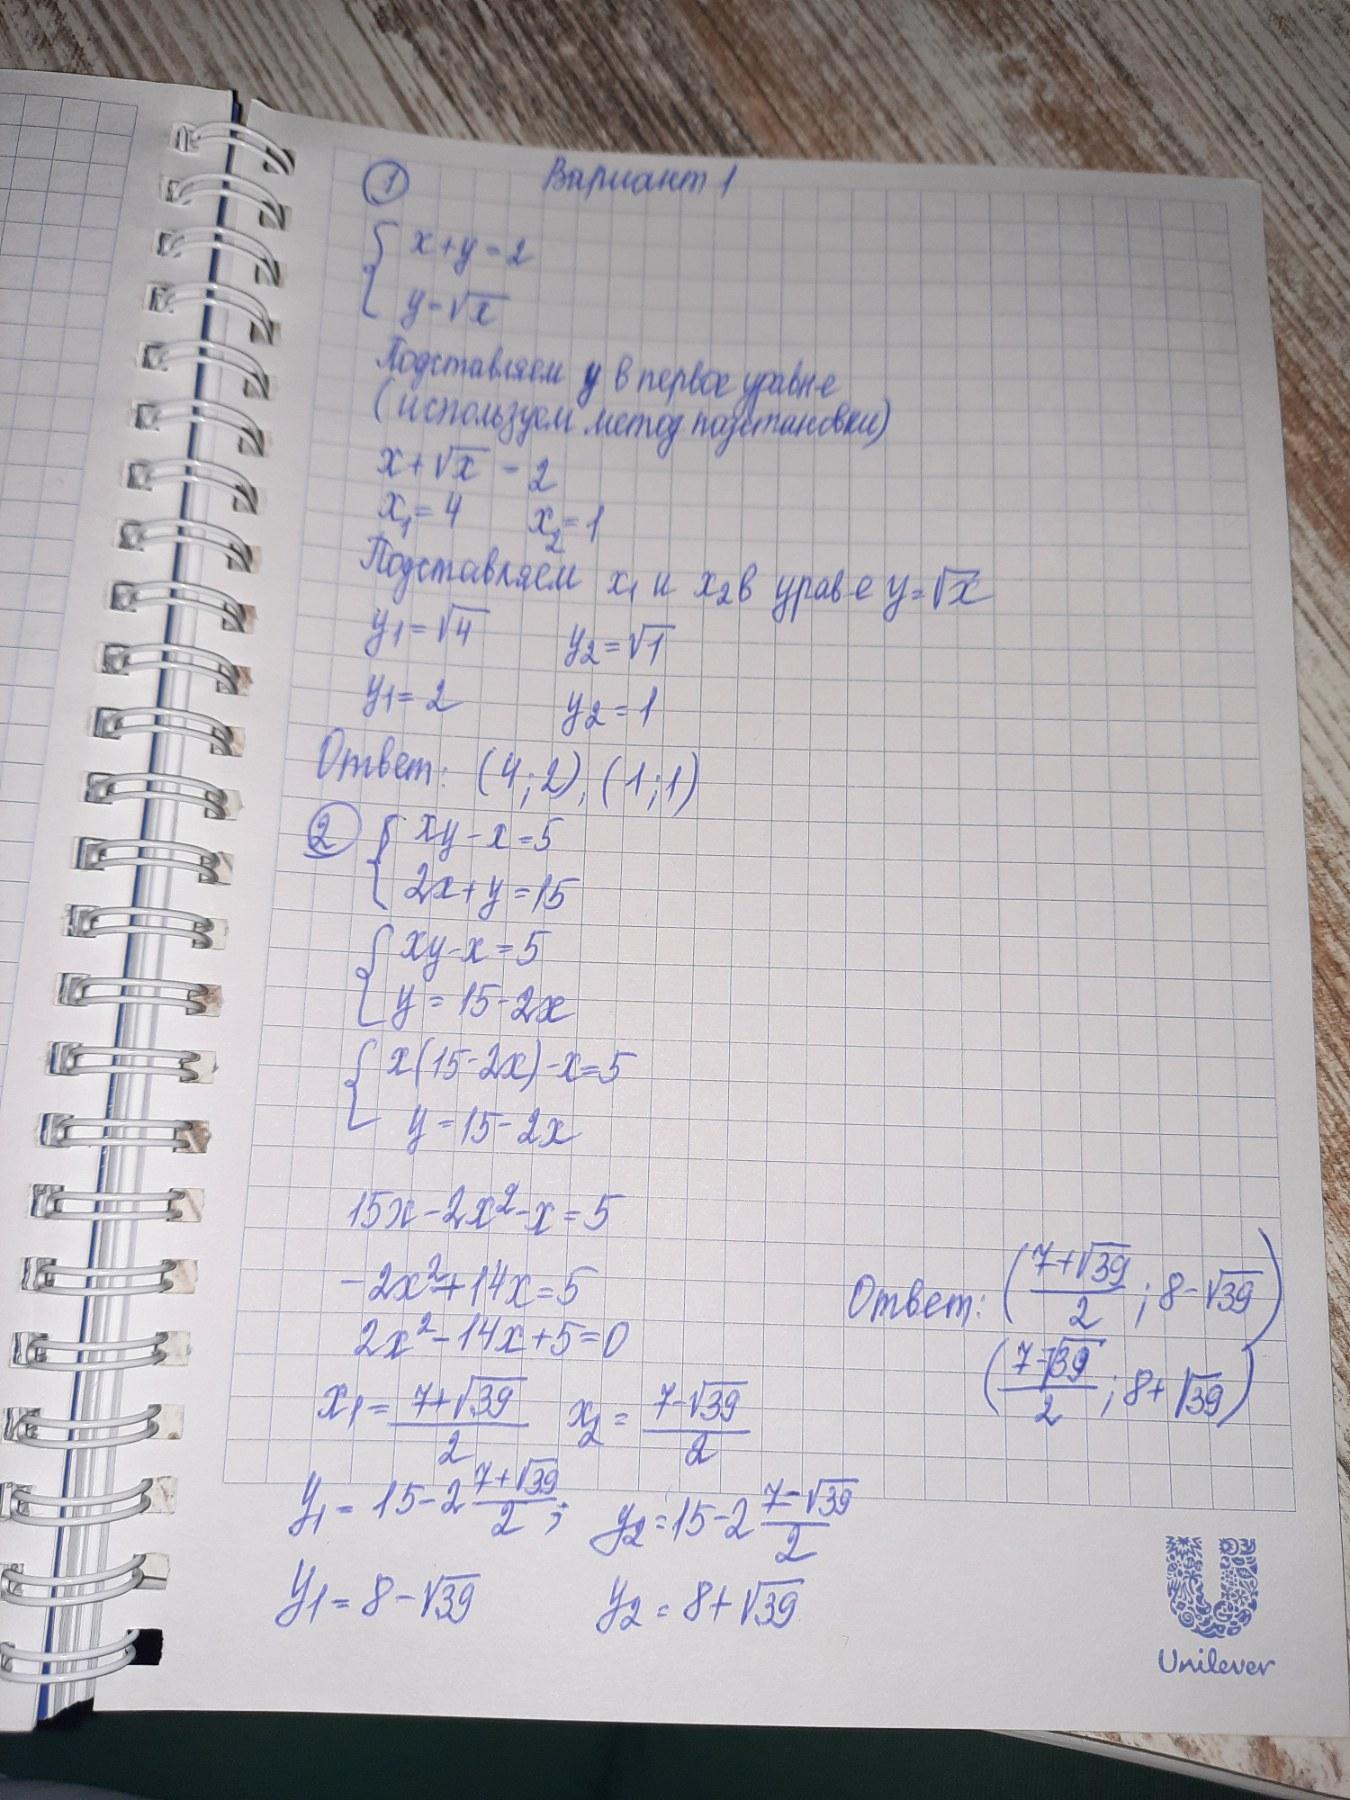 Вариант 1
1
{ x+y=2
y=√x
Подставляем y в первое уравн-е
(используем метод подстановки)
x+√x = 2
x₁=4 x₂=1
Подставляем x₁ и x₂ в урав-е y=√x
y₁=√4 y₂=√1
y₁=2 y₂=1
Ответ: (4;2), (1;1)
2 { xy-x=5
2x+y=15
{ xy-x=5
y=15-2x
{ x(15-2x)-x=5
y=15-2x
15x-2x²-x=5
-2x²+14x=5
2x²-14x+5=0
x₁=(7+√39)/2 x₂=(7-√39)/2
y₁=15-2 (7+√39)/2; y₂=15-2 (7-√39)/2
y₁=8-√39 y₂=8+√39
Ответ: ((7+√39)/2; 8-√39)
((7-√39)/2; 8+√39)
Unilever